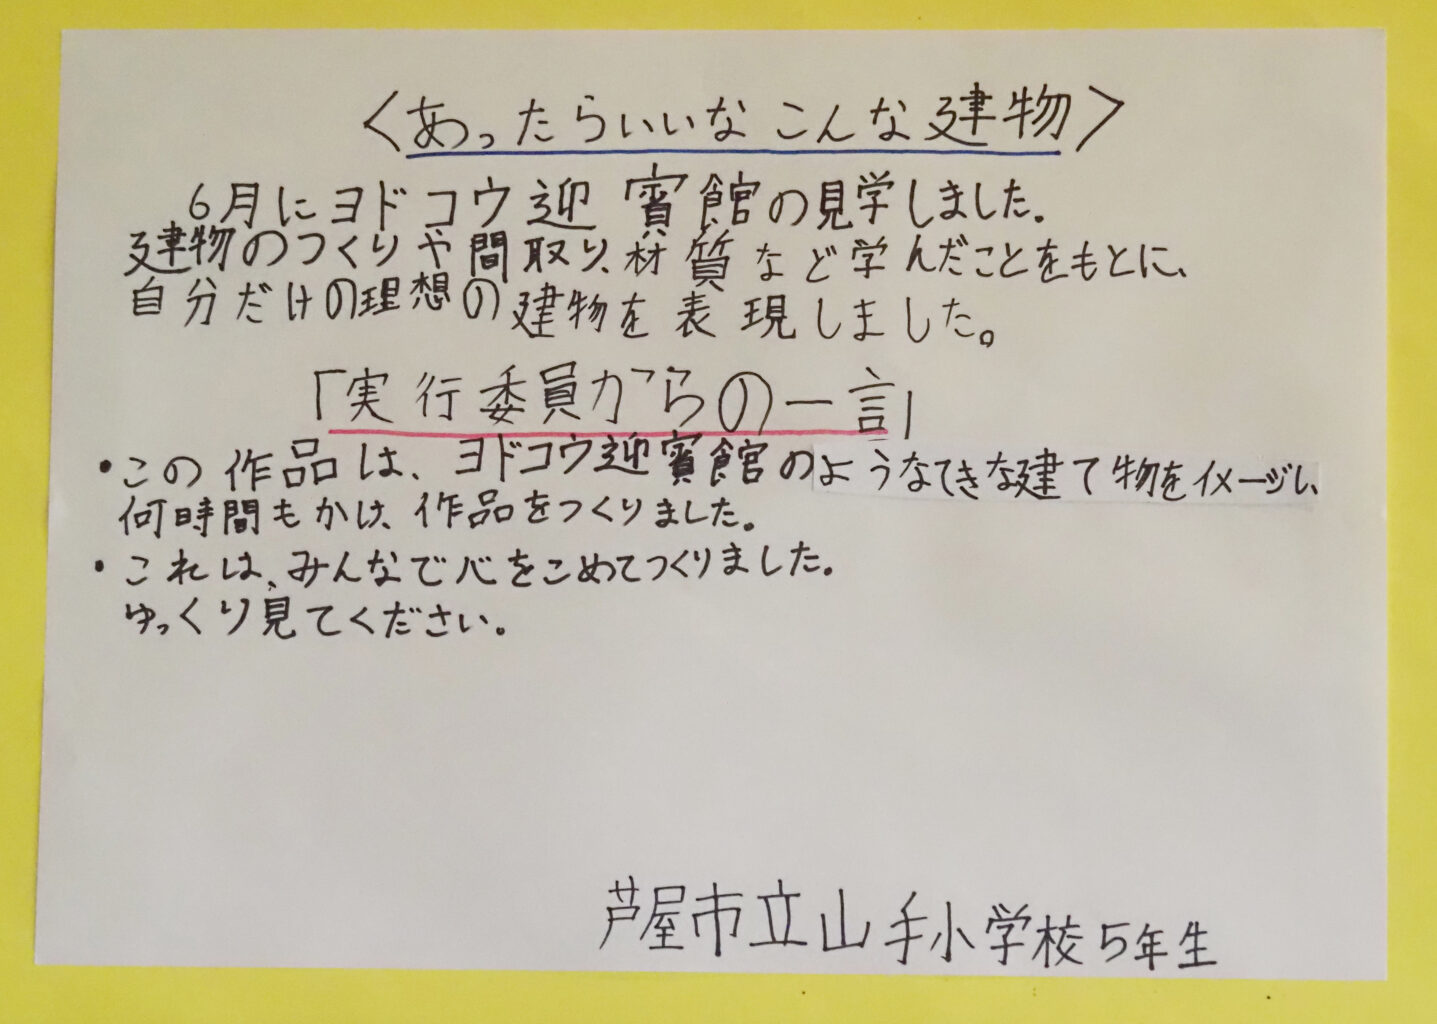 〈あったらいいなこんな建物〉
6月にヨドコウ迎賓館の見学しました。
建物のつくりや間取り、材質など学んだことをもとに、
自分だけの理想の建物を表現しました。
「実行委員からの一言」
・この作品は、ヨドコウ迎賓館のようなてきな建て物をイメージし、
何時間もかけ、作品をつくりました。
・これは、みんなで心をこめてつくりました。
ゆっくり見てください。
芦屋市立山手小学校5年生